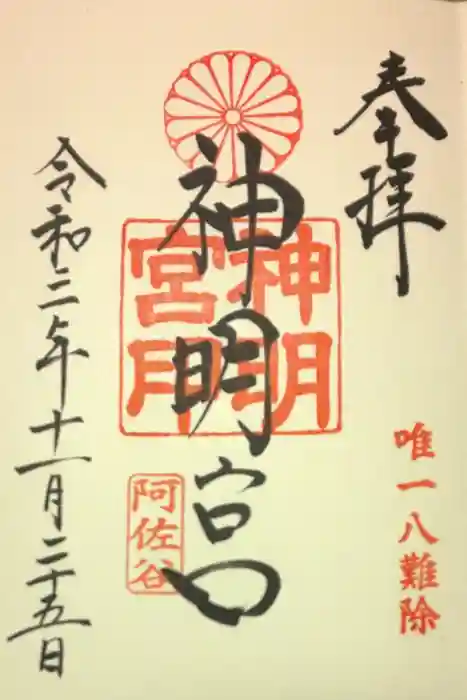 奉拝
唯一八難除
神明宮
神明宮印
阿佐谷
令和三年十一月二十五日